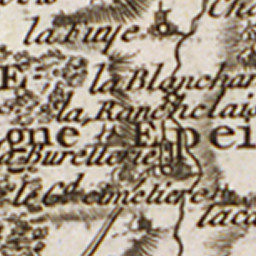 la Fuye
E
la Blanchar
la Ranchelais
gne Epei
a Burellerie
le Gd. cimetiere
laca